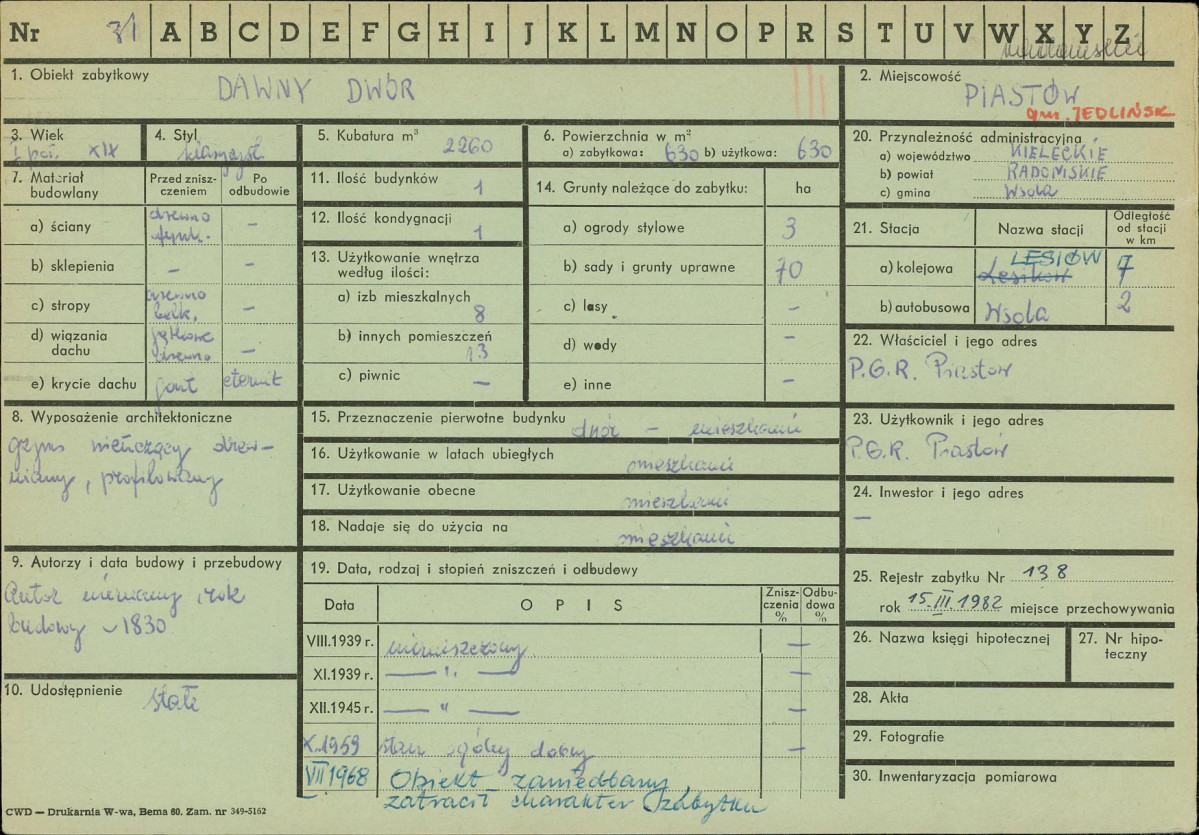 Nr 31 A B C D E F G H I J K L M N O P R S T U V W X Y Z
1. Obiekt zabytkowy
DAWNY DWÓR
2. Miejscowość
PIASTÓW
gm. JEDLIŃSK
3. Wiek
I poł. XIX
4. Styl
5. Kubatura m³
2260
6. Powierzchnia w m²
a) zabytkowa: 630 b) użytkowa: 630
20. Przynależność administracyjna
a) województwo KIELECKIE
b) powiat RADOMSKIE
c) gmina Wsola
7. Materiał budowlany
Przed zniszczeniem
Po odbudowie
a) ściany
drewno tynk. –
b) sklepienia – –
c) stropy
drewno belk. –
d) wiązania dachu
jętkowe drewno –
e) krycie dachu gont eternit
11. Ilość budynków 1
12. Ilość kondygnacji 1
13. Użytkowanie wnętrza według ilości:
a) izb mieszkalnych 8
b) innych pomieszczeń 13
c) piwnic –
14. Grunty należące do zabytku: ha
a) ogrody stylowe 3
b) sady i grunty uprawne 70
c) lasy –
d) wody –
e) inne –
21. Stacja
Nazwa stacji
Odległość od stacji w km
a) kolejowa LESIÓW 7
b) autobusowa Wsola 2
22. Właściciel i jego adres
P.G.R. Piastów
23. Użytkownik i jego adres
P.G.R. Piastów
24. Inwestor i jego adres
–
8. Wyposażenie architektoniczne
gzyms wieńczący drew-
niany, profilowany
15. Przeznaczenie pierwotne budynku dwór – mieszkanie
16. Użytkowanie w latach ubiegłych mieszkanie
17. Użytkowanie obecne mieszkanie
18. Nadaje się do użycia na mieszkanie
9. Autorzy i data budowy i przebudowy
Autor nieznany, rok
budowy ~1830
10. Udostępnienie
stałe
19. Data, rodzaj i stopień zniszczeń i odbudowy
Data
O P I S
Zniszczenia %
Odbudowa %
VIII.1939 r. niezniszczony –
XI.1939 r. — " — –
XII.1945 r. — " — –
X.1959 stan ogólny dobry –
VII 1968 Obiekt zaniedbany
zatracił charakter zabytku
25. Rejestr zabytku Nr 138
rok 15.III.1982 miejsce przechowywania
26. Nazwa księgi hipotecznej
27. Nr hipoteczny
28. Akta
29. Fotografie
30. Inwentaryzacja pomiarowa
CWD — Drukarnia W-wa, Bema 60. Zam. nr 349-5162